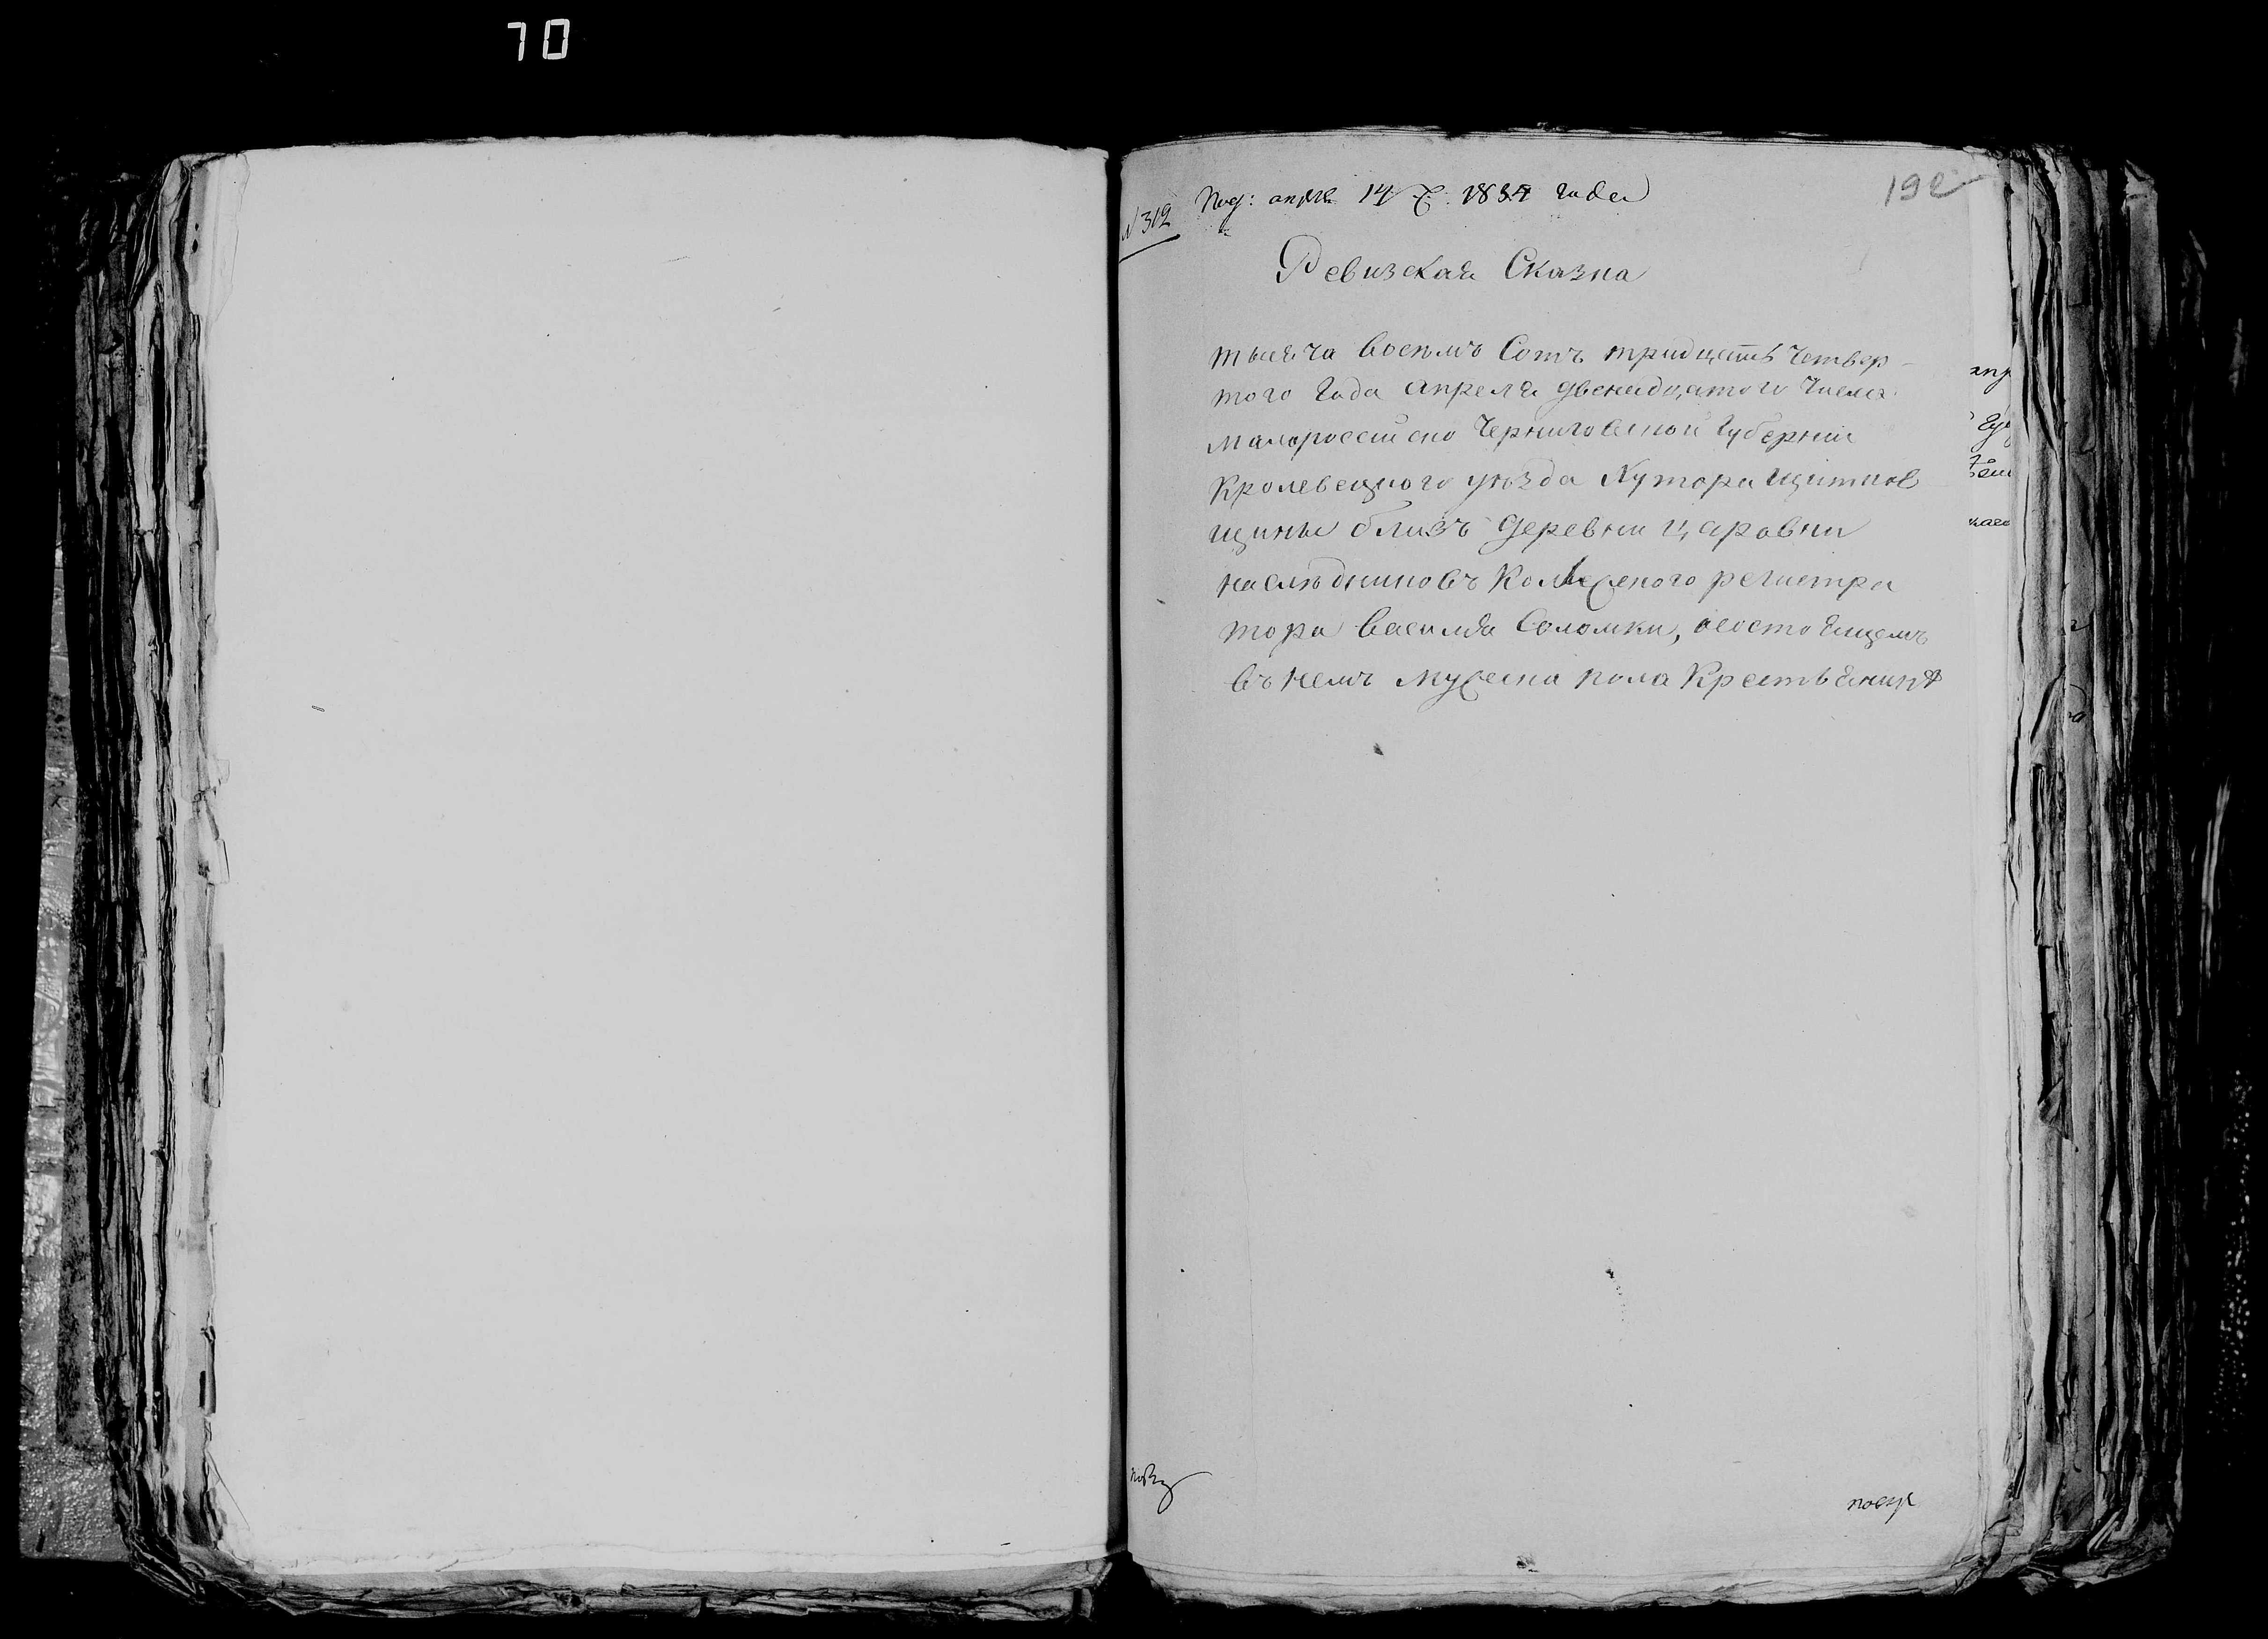 70
192
N 312
Под: апреля 14 ч. 1834 года
Ревизская Сказка
тысяча восемъ Сотъ тридцать четвер-
того Года апреля двенадцатого числа
Малороссийско Черниговской Губернии
Кролевецкого уезда Хутора Щитков
щины близъ деревни Царовки
наследниковъ Колежского регистра
тора василия Соломки, осостоящемъ
въ немъ мужеска пола Крестьянине